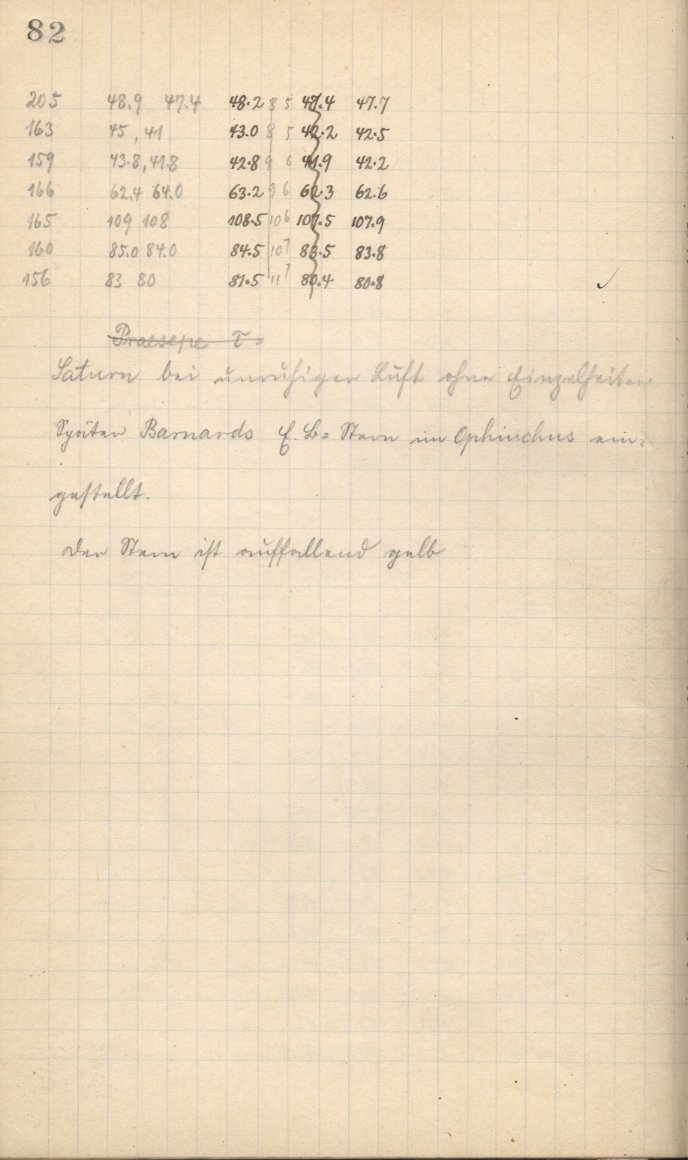 82
205 48.9 47.4 48.2 8 5 47.4 47.7
163 45, 41 43.0 8 5 42.2 42.5
159 43.8, 41.8 42.8 9 6 41.9 42.2
166 62.4 64.0 63.2 9 6 62.3 62.6
165 109 108 108.5 10 6 107.5 107.9
160 85.0 84.0 84.5 10 7 83.5 83.8
156 83 80 81.5 11 7 80.4 80.8
Praesepe τ =
Saturn bei unruhiger Luft ohne Einzelheiten
Später Barnards E. B= Stern im Ophiuchus ein=
gestellt.
Der Stern ist auffallend gelb